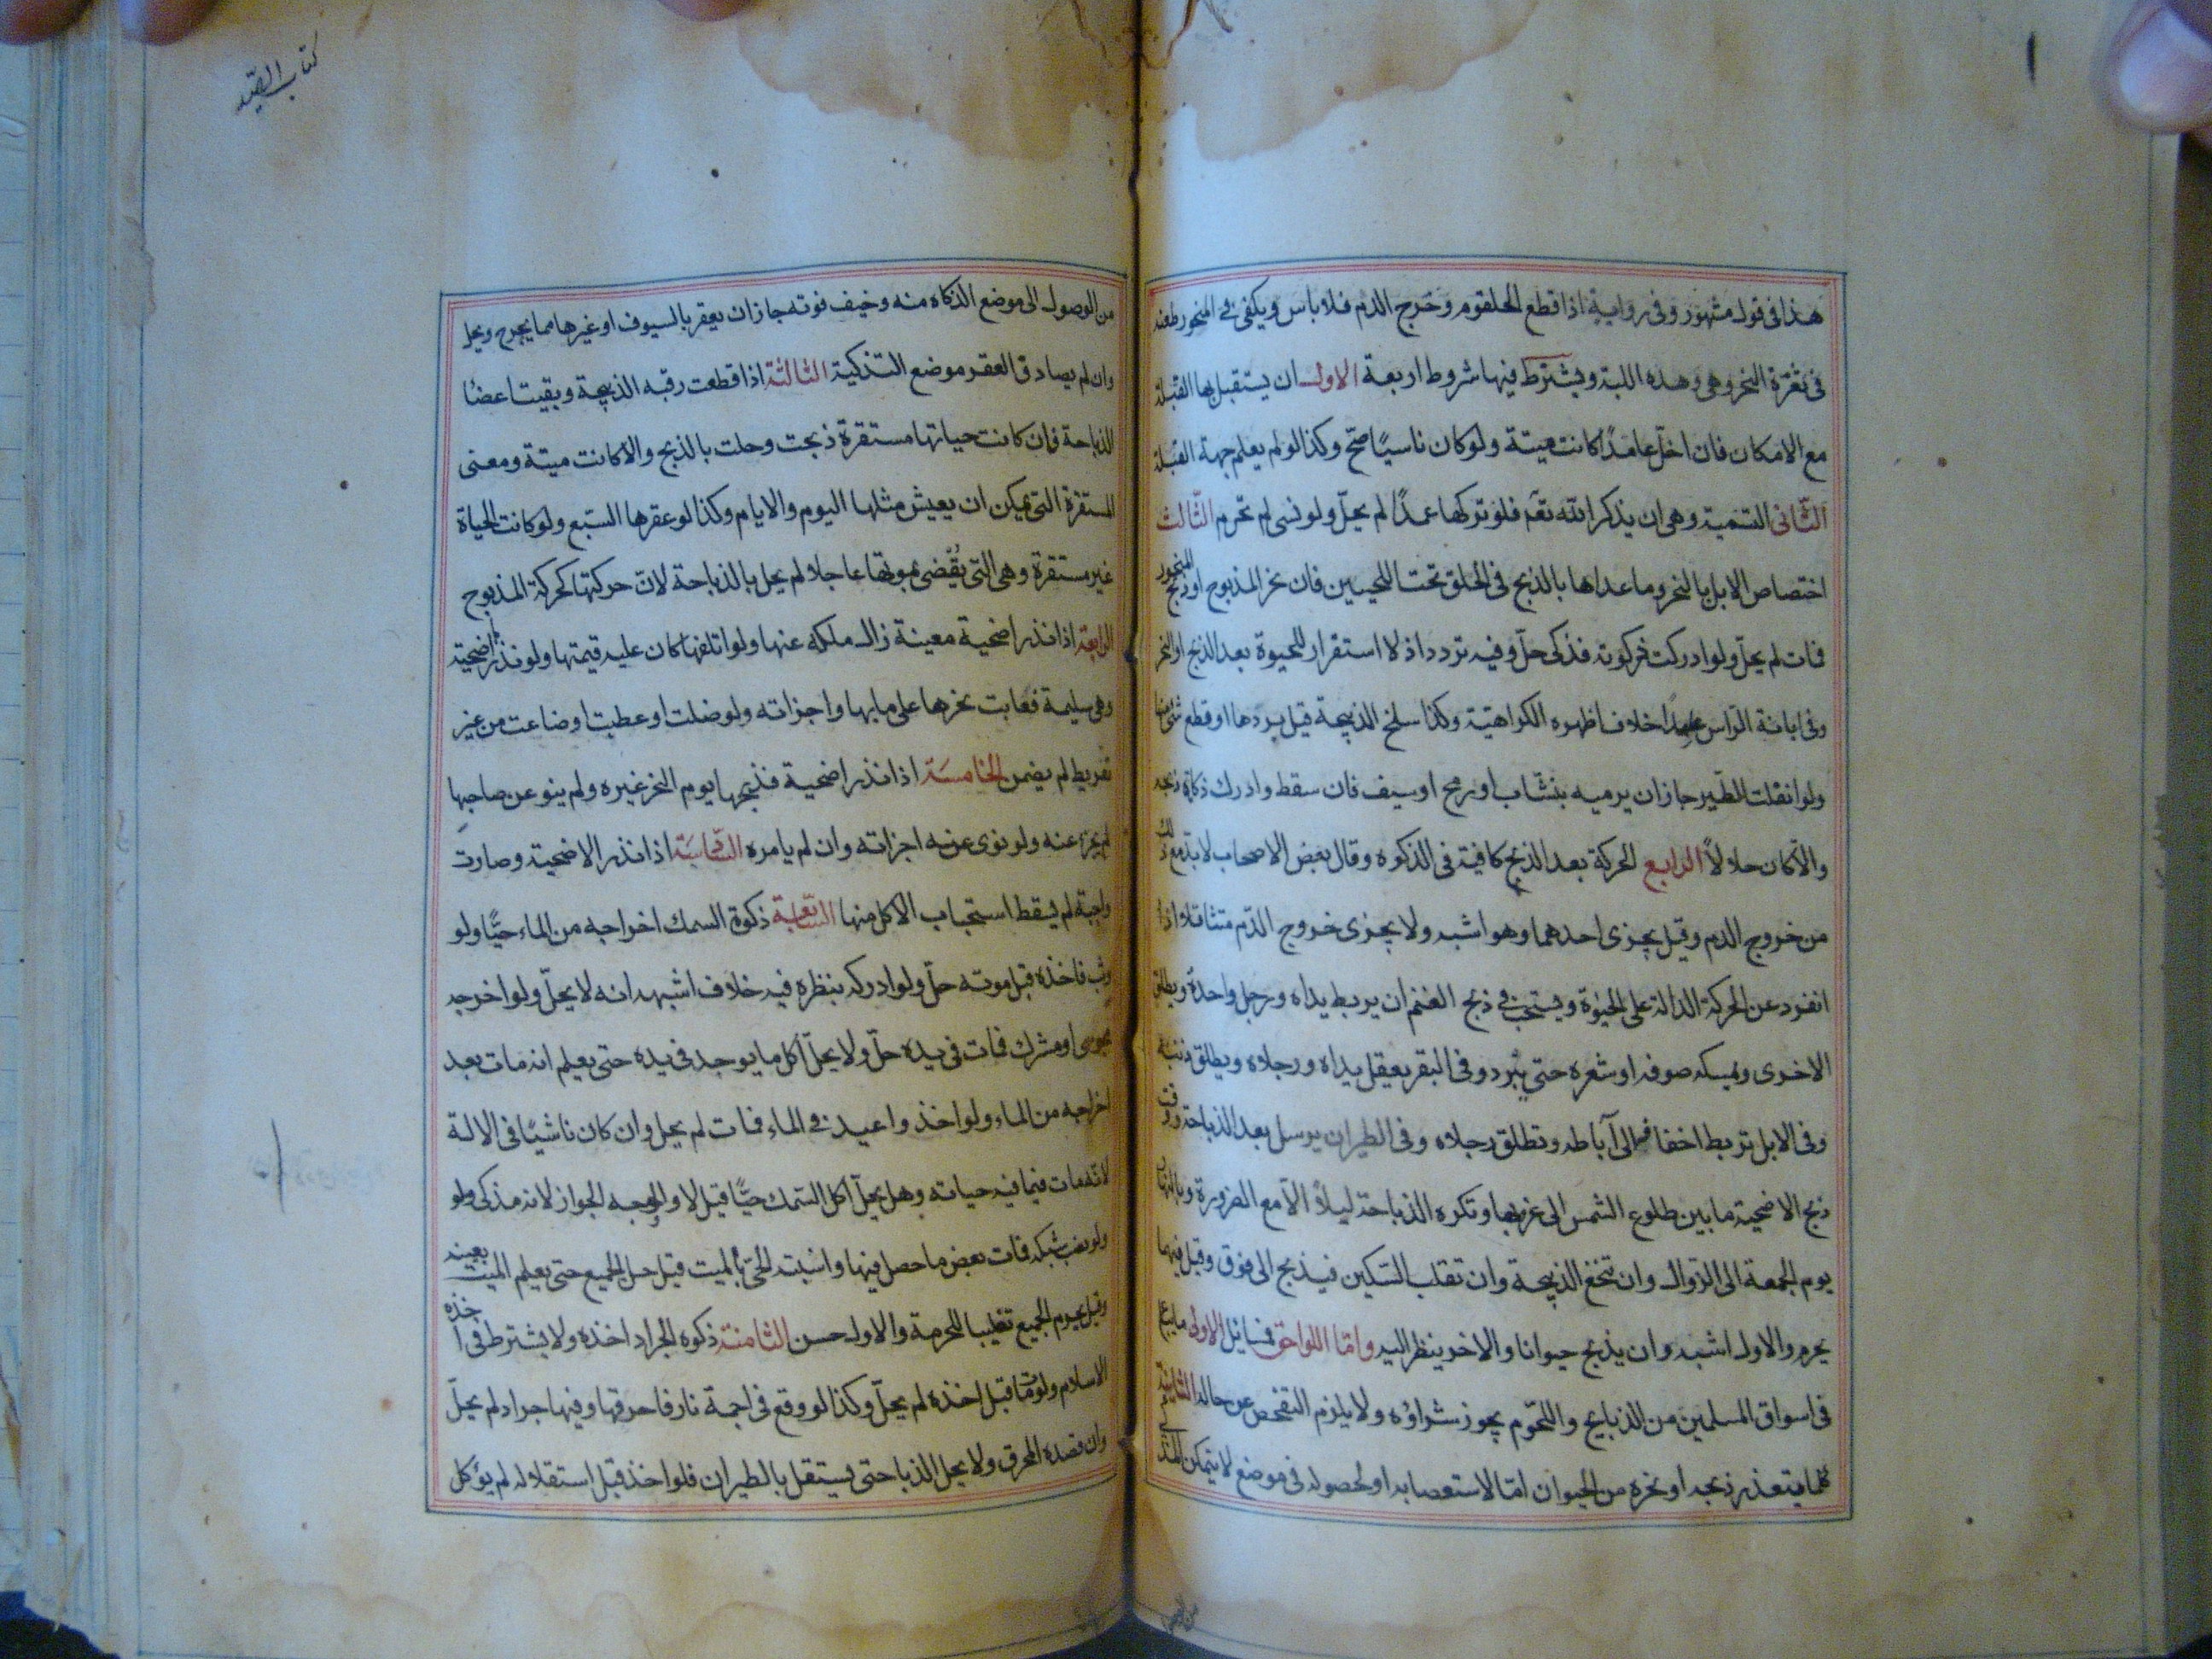 هذا فى قول مشهور وفى رواية اذا قطع الحلقوم وخرج الدم فلا باس ويكفى فى المنحور طعنه
فى ثغرة النحر وهى وهدة اللبة ويشترط فيها شروط اربعة الاول ان يستقبل بها القبلة
مع الامكان فان اخلّ عامدًا كانت ميتة ولو كان ناسيًا صحّ وكذا لو لم يعلم جهة القبلة
الثانى التسمية وهى ان يذكر الله تعـ فلو تركها عمدًا لم يحلّ ولو نسى لم تحرم الثالث
اختصاص الابل بالنحر وما عداها بالذبح فى الحلق تحت اللحيين فان نحر المذبوح او ذبح المنحور
فمات لم يحلّ ولو ادركت ذكوته فذكى حلّ وفيه تردد اذ لا استقرار للحيوة بعد الذبح او النحر
وفى ابانة الراس عمدًا خلاف اظهره الكراهية وكذا سلخ الذبيحة قبل بردها او قطع شئ منها
ولو انفلت الطير جاز ان يرميه بنشاب او رمح او سيف فان سقط وادرك ذكاة ذبحه
والا كان حلالاً الرابع الحركة بعد الذبح كافية فى الذكوة وقال بعض الاصحاب لابد مع ذلك
من خروج الدم وقيل يجزى احدهما وهو اشبه ولا يجزى خروج الدم متثاقلا اذا
انفرد عن الحركة الدالة على الحيوة ويستحب فى ذبح الغنم ان يربط يداه ورجل واحدة ويطلق
الاخرى ويمسك صوفه او شعره حتى يبرد وفى البقر يعقل يداه ورجلاه ويطلق ذنبه
وفى الابل تربط اخفافه الى آباطه وتطلق رجلاه وفى الطير ان يرسل بعد الذباحة ووقت
ذبح الاضحية ما بين طلوع الشمس الى غروبها وتكره الذباحة ليلاً الا مع الضرورة وبالنهار
يوم الجمعة الى الزوال وان تنخع الذبيحة وان تقلب السكين فيذبح الى فوق وقيل فيهما
يحرم والاول اشبه وان يذبح حيوانا والاخر ينظر اليه واما اللواحق فمسائل الاولى ما يباع
فى اسواق المسلمين من الذبايح واللحوم يجوز شراؤه ولا يلزم التفحص عن حاله الثانية
كلما يتعذر ذبحه او نحره من الحيوان اما لاستعصابه او لحصوله فى موضع لا يتمكن المذكى
كتاب الصيد
من الوصول الى موضع الذكاه منه وخيف فوته جاز ان يعقر بالسيوف او غيرها مما يجرح ويحل
وان لم يصادق العقر موضع التذكية الثالثة اذا قطعت رقبه الذبيحة وبقيت اعضا
الذباحة فان كانت حياتها مستقرة ذبحت وحلت بالذبح والا كانت ميتة ومعنى
المستقرة التى يمكن ان يعيش مثلها اليوم والايام وكذا لو عقرها السبع ولو كانت الحياة
غير مستقرة وهى التى يُقضى بموتها عاجلا لم يحل بالذباحة لان حركتها كحركة المذبوح
الرابعة اذا نذر اضحية معينة زال ملكه عنها ولو اتلفها كان عليه قيمتها ولو نذر اضحية
وهى سليمة فعابت نحرها على ما بها واجزاته ولو ضلت او عطبت او ضاعت من غير
تفريط لم يضمن الخامسة اذا نذر اضحية فذبحها يوم النحر غيره ولم ينو عن صاحبها
لم يجز عنه ولو نوى عنه اجزاته وان لم يامره السادسة اذا نذر الاضحية وصارت
واجبة لم يسقط استحباب الاكل منها السابعة ذكوة السمك اخراجه من الماء حيًّا ولو
وثب فاخذه قبل موته حلّ ولو ادركه بنظره فيه خلاف اشبهه انه لا يحلّ ولو اخرجه
مجوسى او مشرك فمات فى يده حلّ ولا يحلّ اكل ما يوجد فى يده حتى يعلم انه مات بعد
اخراجه من الماء ولو اخذ واعيد فى الماء فمات لم يحل وان كان ناشبًا فى الالة
لانه مات فيما فيه حياته وهل يحلّ اكل السمك حيًّا قيل لا والوجه الجواز لانه مذكى ولو
ولو نصب شبكه فمات بعض ما حصل فيها واشتبه الحىّ بالميت قيل حل الجميع حتى يعلم الميت بعينه
وقيل يحرم الجميع تغليبا للحرمة والاول حسن الثامنة ذكوة الجراد اخذه ولا يشترط فى اخذه
الاسلام ولو مات قبل اخذه لم يحلّ وكذا لو وقع فى اجمة نار فاحرقها وفيها جراد لم يحلّ
وان قصده المحرق ولا يحل الدبا حتى يستقل بالطيران فلو اخذ قبل استقلاله لم يؤكل